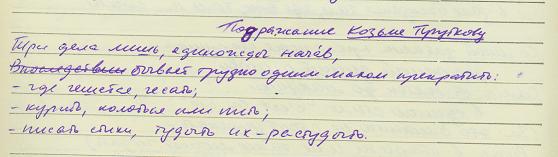 Подражание Козьме Пруткову
Три дела лишь, единожды начав,
Впоследствии бывает трудно одним махом прекратить:
- где чешется, чесать;
- курить, колоться или пить;
- писать стихи, тудыть их - растудыть.